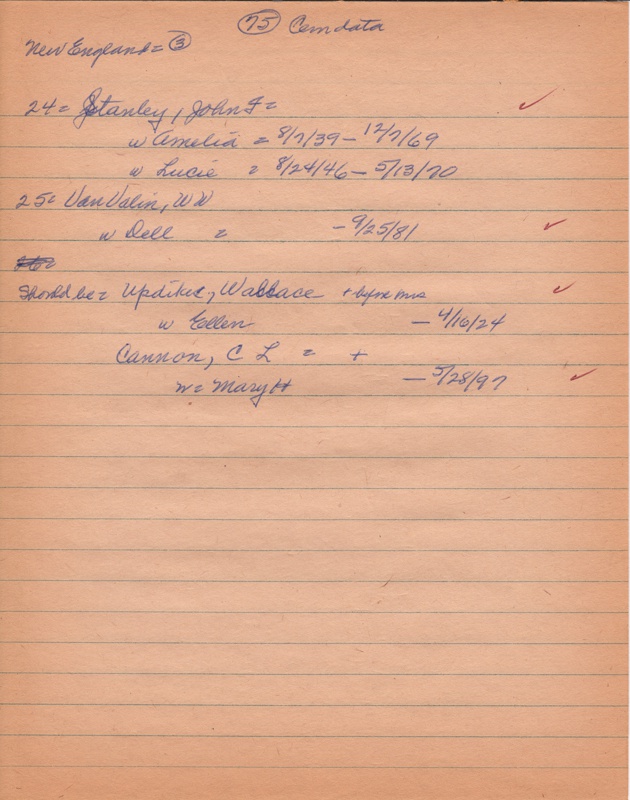 75 Cemdata
New England = 3
24 = Stanley, John F =
w Amelia = 8/7/39 - 12/7/69
w Lucie = 8/24/46 - 5/13/70
25 = Van Valin, W W
w Dell = - 9/25/81
Should be = Updike, Wallace +
w Ellen - 4/16/24
Cannon, C L = +
w = Mary H - 5/28/97